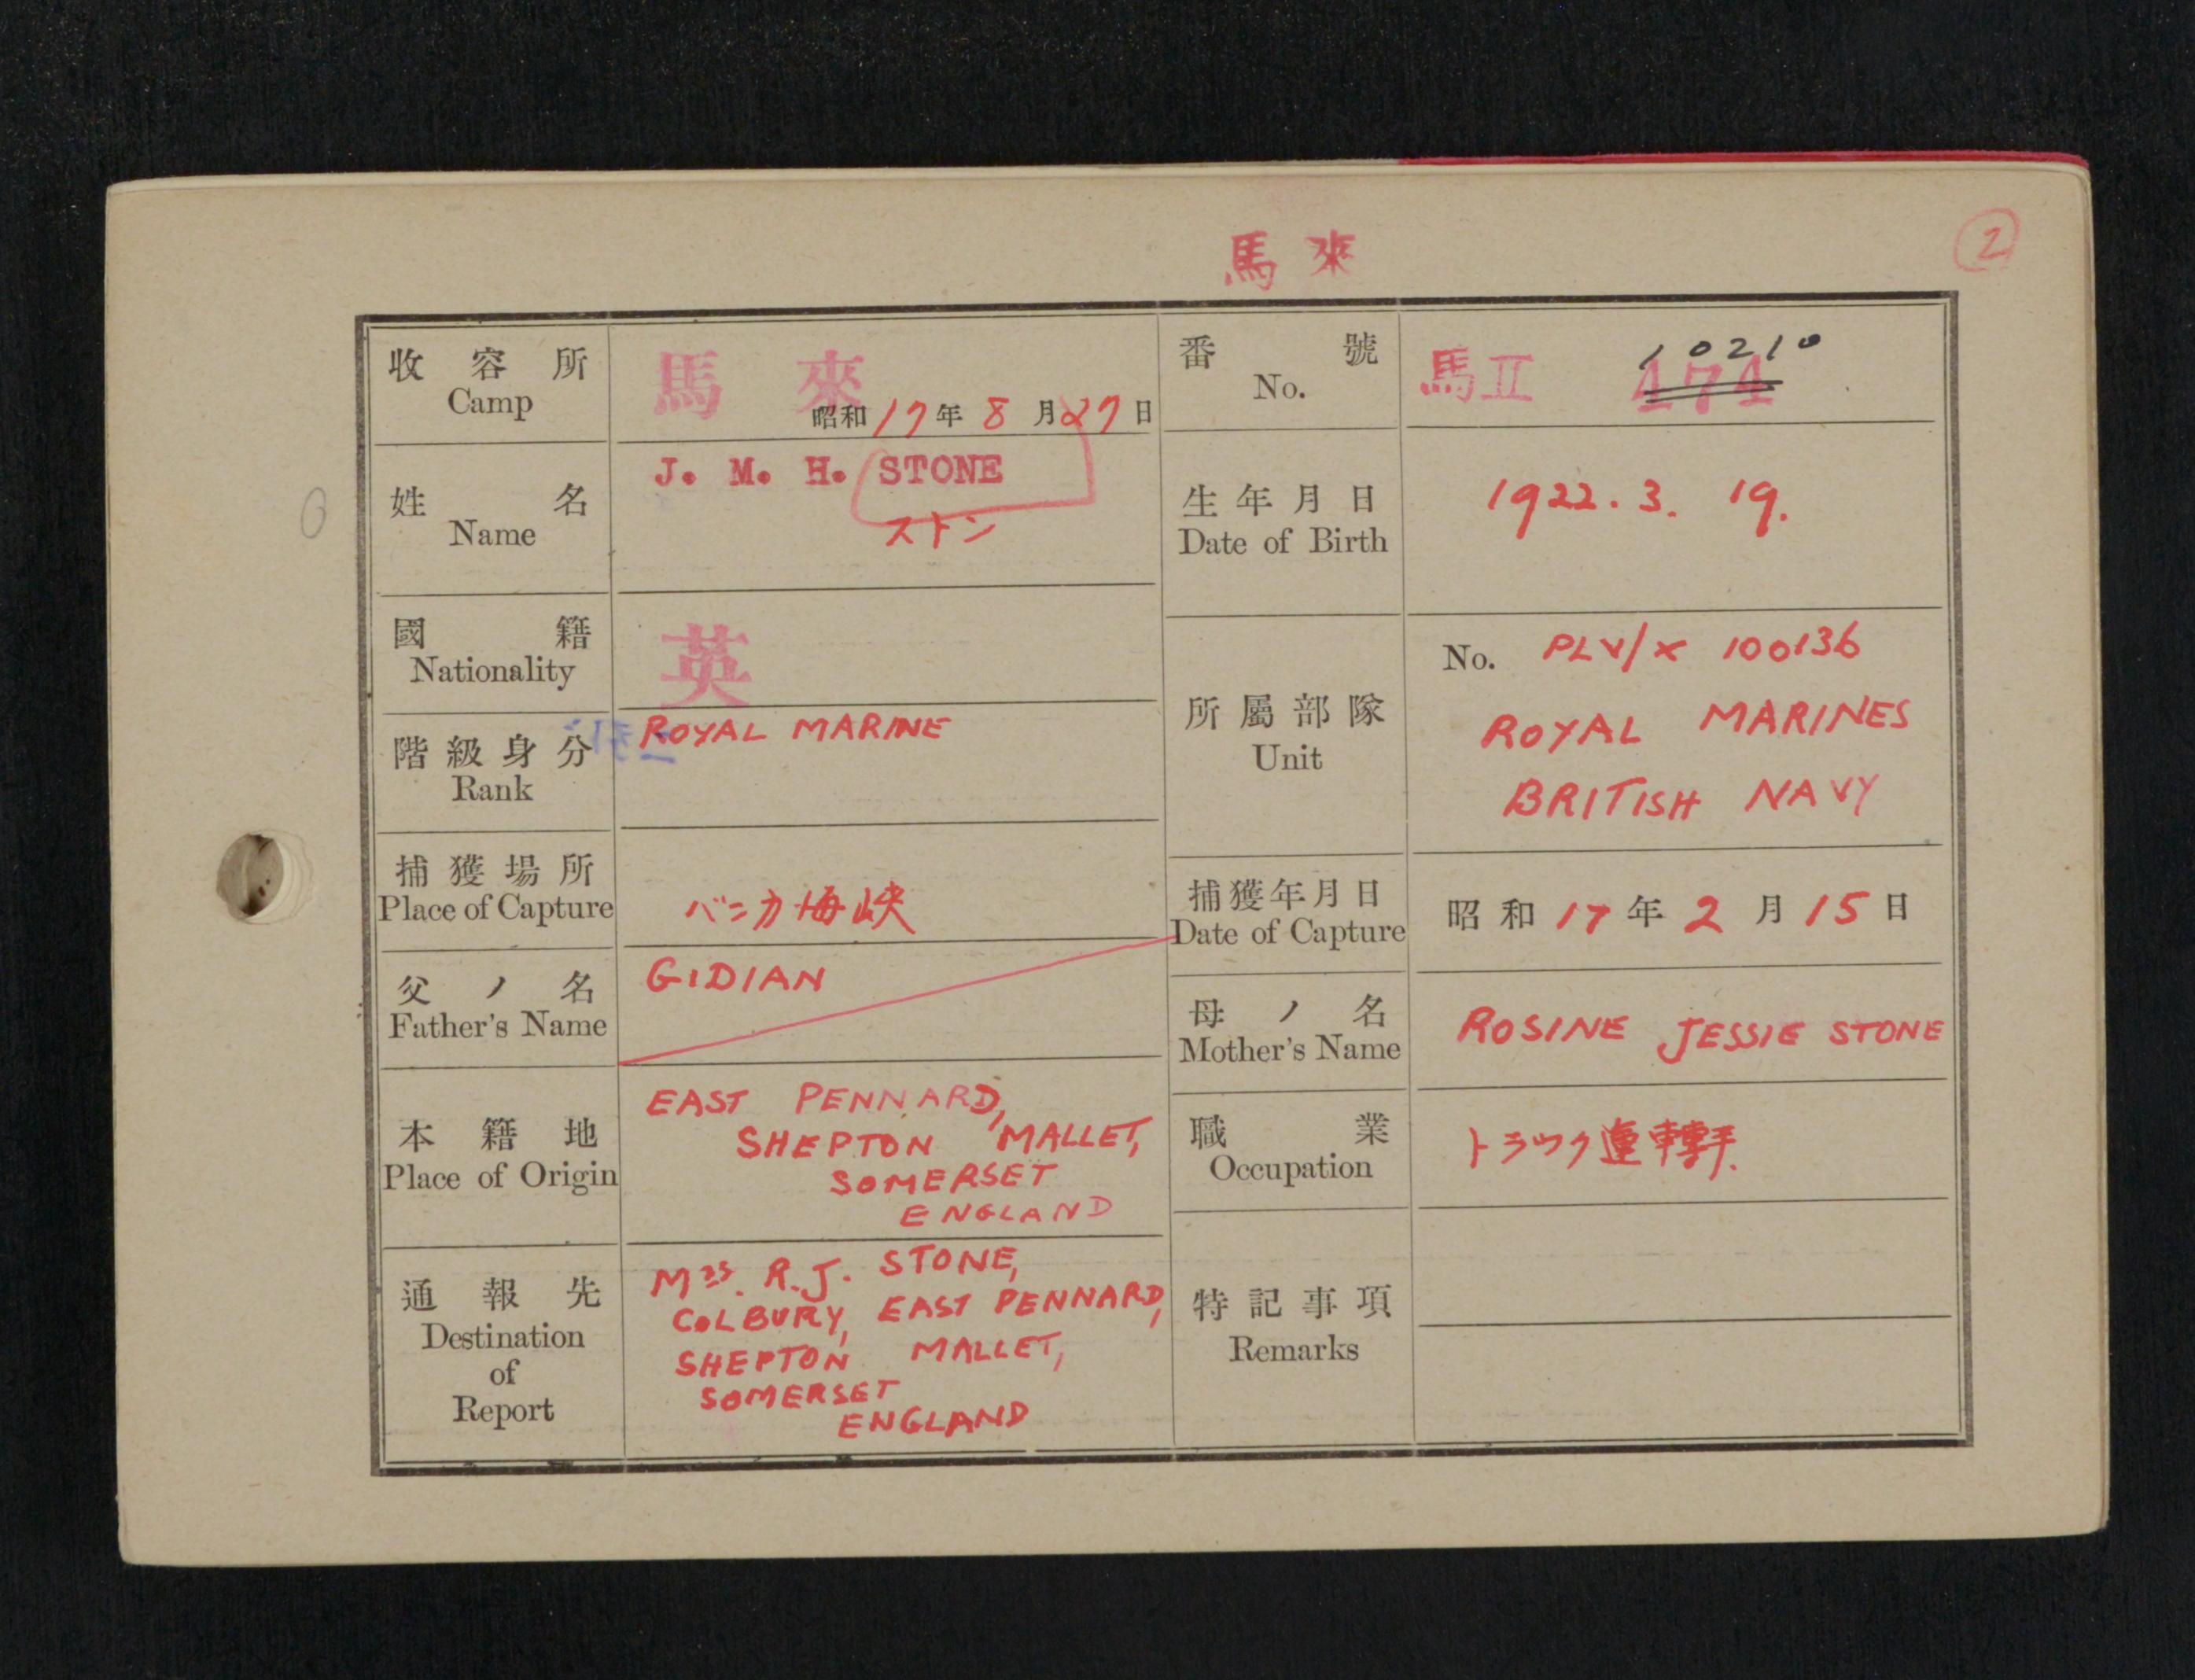 馬來
2
收容所
Camp
馬來
昭和17年8月27日
番號
No.
馬II 474
10210
姓名
Name
J. M. H. STONE
ストン
生年月日
Date of Birth
1922. 3. 19.
國籍
Nationality
英
階級身分
Rank
ROYAL MARINE
所屬部隊
Unit
No. PLY/X 100136
ROYAL MARINES
BRITISH NAVY
捕獲場所
Place of Capture
バンカ海峡
捕獲年月日
Date of Capture
昭和17年2月15日
父ノ名
Father's Name
GIDIAN
母ノ名
Mother's Name
ROSINE JESSIE STONE
本籍地
Place of Origin
EAST PENNARD,
SHEPTON MALLET,
SOMERSET
ENGLAND
職業
Occupation
トラック運轉手.
通報先
Destination
of
Report
Mrs. R.J. STONE,
COLBURY, EAST PENNARD,
SHEPTON MALLET,
SOMERSET
ENGLAND
特記事項
Remarks